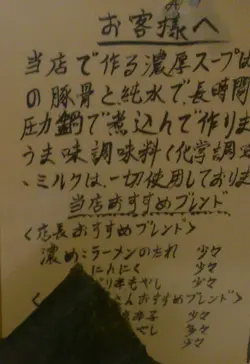 お客様へ
当店で作る濃厚スープは
の豚骨と純水で、長時間
圧力鍋で煮込んで作りま
うま味調味料(化学調
、ミルクは、一切使用しておりま
当店おすすめブレンド
〈店長おすすめブレンド〉
濃いめラーメンのたれ 少々
にんにく 少々
もやし 少々
さんおすすめブレンド〉
辛子 少々
やし 多々
少々